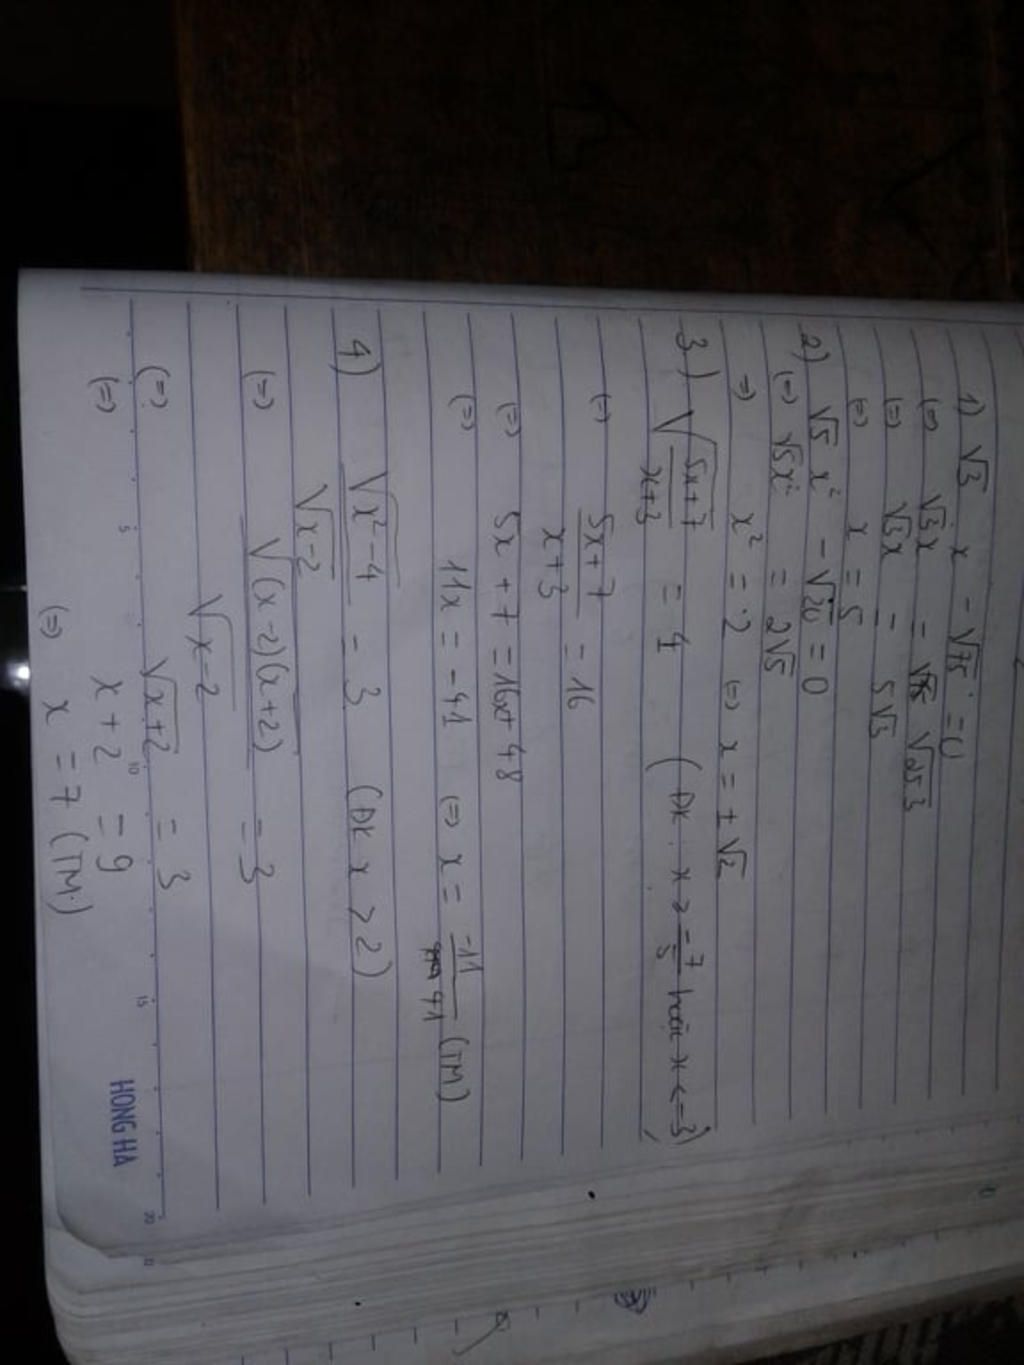 1) √3 x - √75 = 0
(=) √3x = √25.3
(=) √3x = 5√3
(=) x = 5
2) √5 x² - √20 = 0
(=) √5x² = 2√5
=) x² = 2 (=) x = ± √2
3) √(5x+7)/(x+3) = 4 (ĐK: x ≥ -7/5 hoặc x < -3)
(=) (5x+7)/(x+3) = 16
(=) 5x + 7 = 16x + 48
(=) 11x = -41 (=) x = -11/41 (TM)
4) √(x²-4)/√(x-2) = 3 (ĐK x > 2)
(=) √((x-2)(x+2))/√(x-2) = 3
(=) √(x+2) = 3
(=) x + 2 = 9
(=) x = 7 (TM)
5 10 15 20
HONG HA